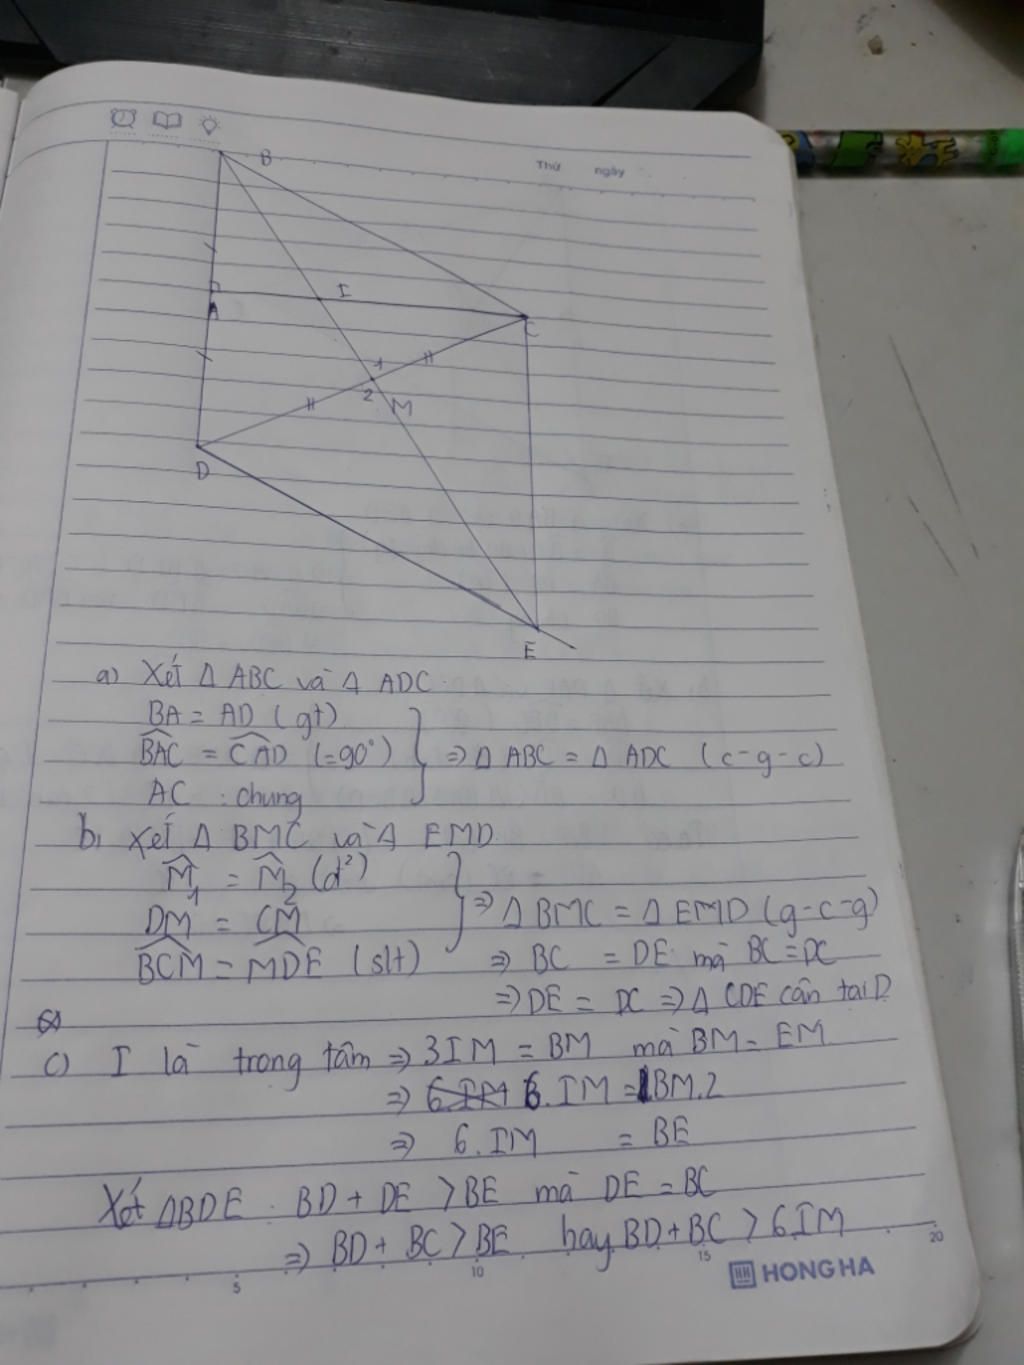 Thứ ngày
B
I
A
C
1
2
M
D
E
a) Xét Δ ABC và Δ ADC
BA = AD (gt)
BAC = CAD (=90°) ⇒ Δ ABC = Δ ADC (c-g-c)
AC : chung
b, Xét Δ BMC và Δ EMD
M1 = M2 (đ²)
DM = CM ⇒ Δ BMC = Δ EMD (g-c-g)
BCM = MDE (slt) ⇒ BC = DE mà BC = DC
⇒ DE = DC ⇒ Δ CDE cân tại D
c) I là trong tâm ⇒ 3IM = BM mà BM = EM
⇒ 6.IM = BM.2
⇒ 6.IM = BE
Xét ΔBDE : BD + DE > BE mà DE = BC
⇒ BD + BC > BE hay BD + BC > 6.IM
5 10 15 20
HH HONG HA